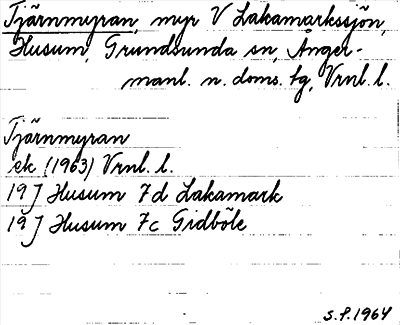 Tjärnmyran, myr V Lakamarkssjön,
Husum, Grundsunda sn, Ånger-
manl. n. doms. tg, Vrnl. l.
Tjärnmyran
ek (1963) Vrnl. l.
19J Husum 7d Lakamark
19J Husum 7c Gidböle
S.P. 1964